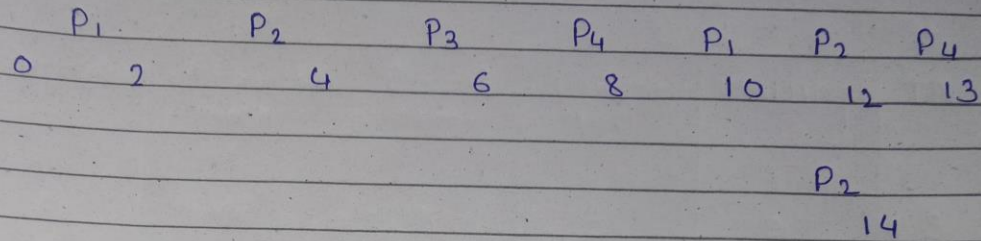 P1 P2 P3 P4 P1 P2 P4
0 2 4 6 8 10 12 13
P2
14